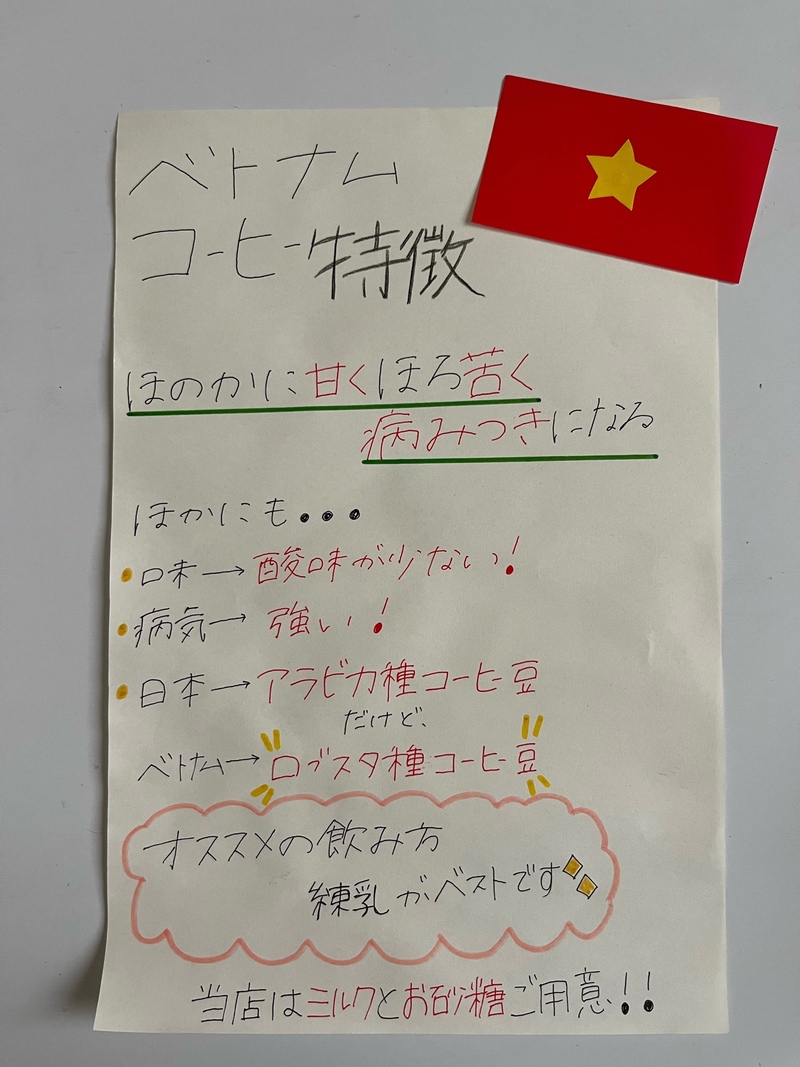 ベトナム
コーヒー特徴
ほのかに甘くほろ苦く
病みつきになる
ほかにも・・・
・口未→酸味が少ない!
・病気→強い!
・日本→アラビカ種コーヒー豆
だけど、
ベトナム→ロブスタ種コーヒー豆
オススメの飲み方
練乳がベストです
当店はミルクとお砂糖ご用意!!